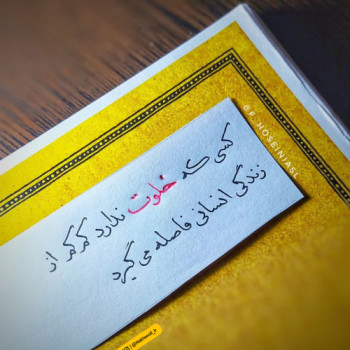 کسی که خلوت ندارد کم‌کم از
زندگی انسانی فاصله می‌گیرد
@P_HOSEINIASL